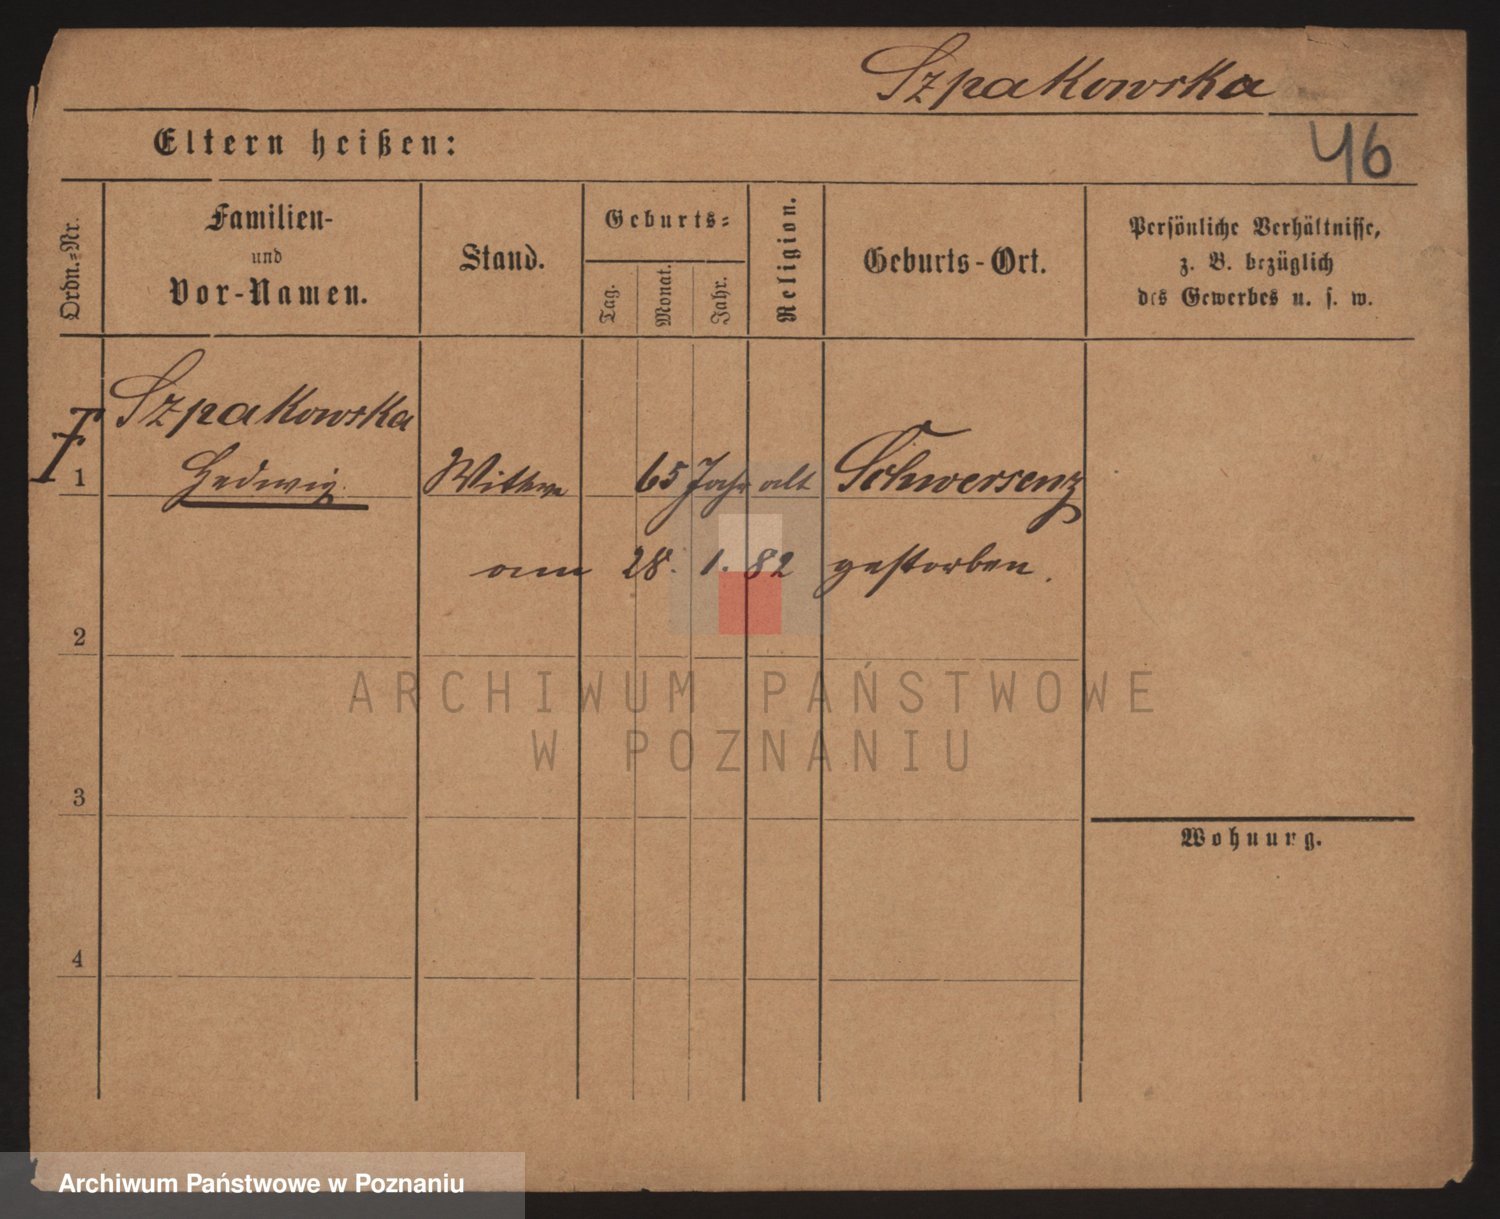 Szpakowska
46
Eltern heißen:
Ordn.=Nr.
Familien-
und
Vor-Namen.
Stand.
Geburts=
Tag.
Monat.
Jahr.
Religion.
Geburts-Ort.
Persönliche Verhältnisse,
z. B. bezüglich
des Gewerbes u. s. w.
Szpakowska
1 Hedwig Wittwe 65 Jahr alt Schwersenz
am 28. 1. 82 gestorben.
2
ARCHIWUM PAŃSTWOWE
W POZNANIU
3
Wohnung.
4
Archiwum Państwowe w Poznaniu